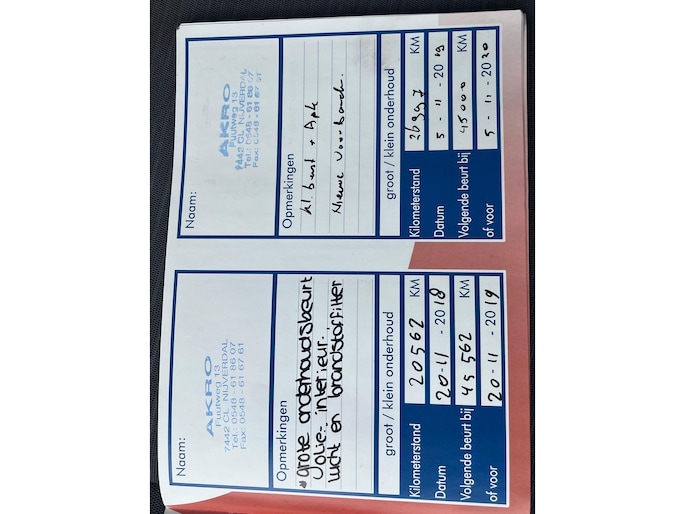 Naam:
AKRO
Fuutweg 13
7442 CL NIJVERDAL
Tel.: 0548 - 61 86 07
Fax: 0548 - 61 67 61
Opmerkingen
grote onderhoudsbeurt
olie-, interieur-,
lucht en brandstoffilter
groot / klein onderhoud
Kilometerstand 20562 KM
Datum 20-11 - 2018
Volgende beurt bij 45562 KM
of voor 20-11 - 2019
Naam:
AKRO
Fuutweg 13
7442 CL NIJVERDAL
Tel.: 0548 - 61 86 07
Fax: 0548 - 61 67 61
Opmerkingen
kl. beurt + Apk
Nieuwe voorbanden.
groot / klein onderhoud
Kilometerstand 26997 KM
Datum 5 - 11 - 2019
Volgende beurt bij 45000 KM
of voor 5 - 11 - 2020